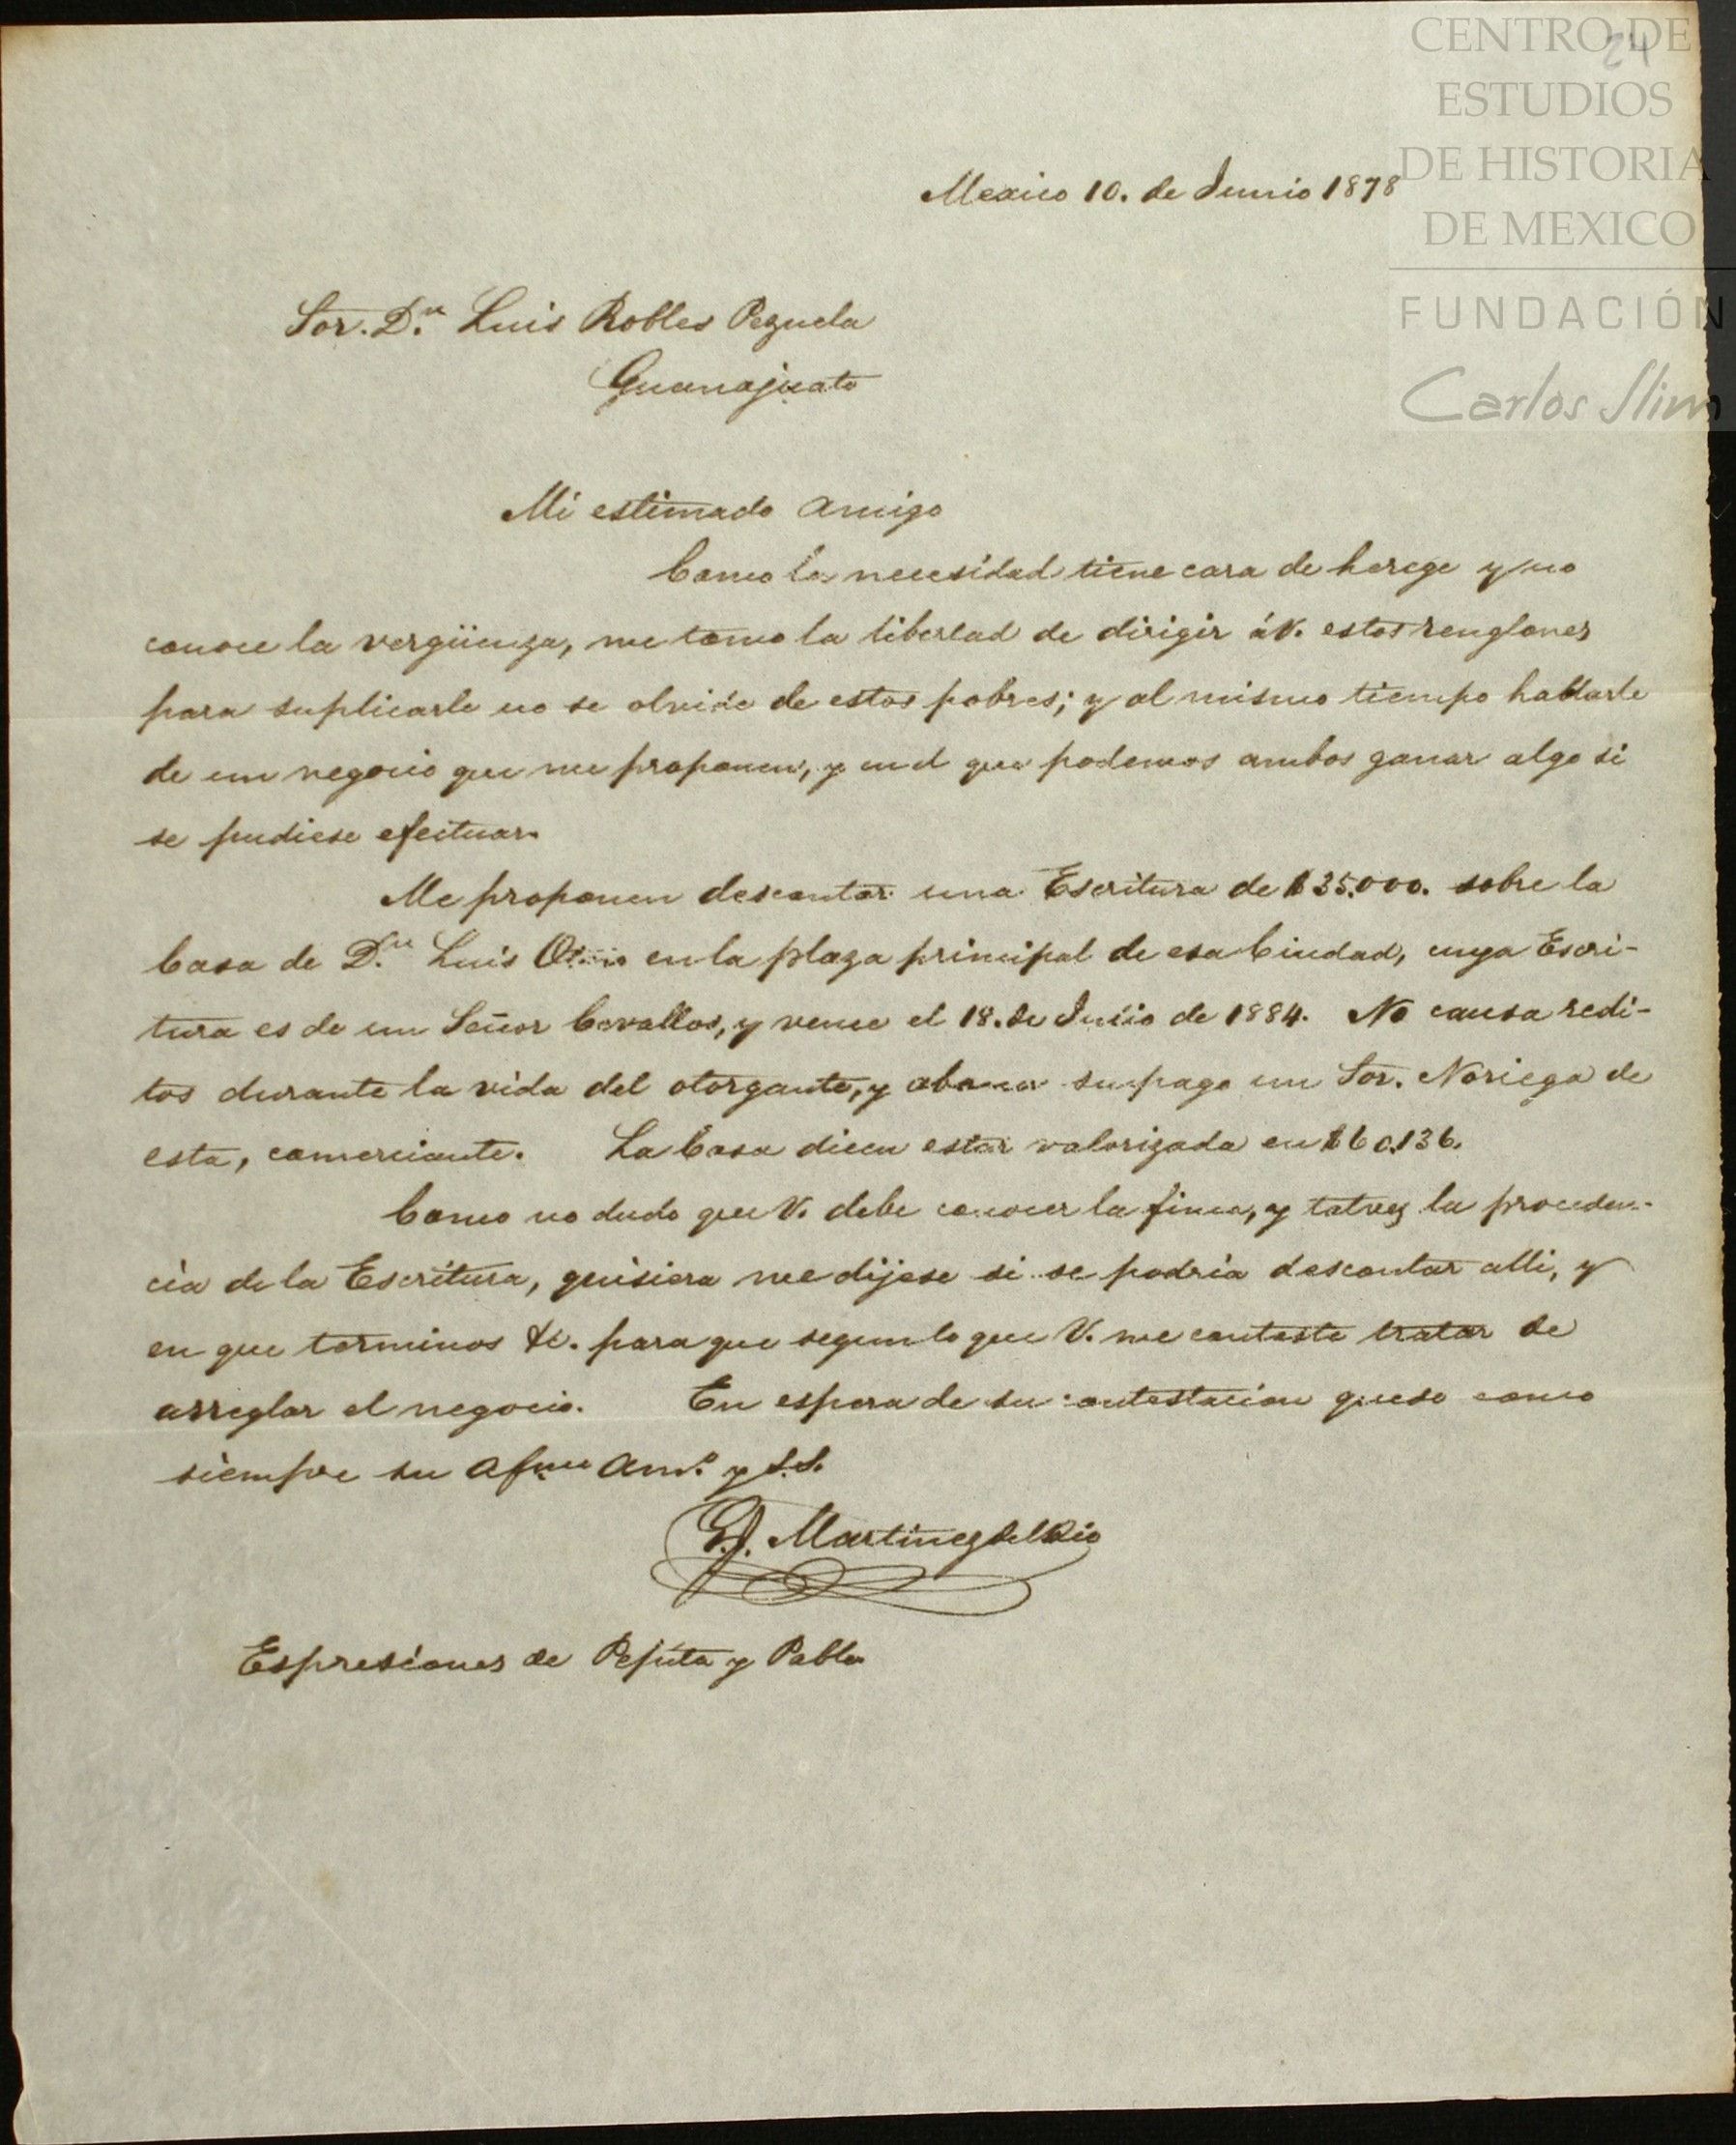 24
CENTRO DE
ESTUDIOS
DE HISTORIA
DE MEXICO
FUNDACIÓN
Carlos Slim
Mexico 10. de Junio 1878
Sor. D.n Luis Robles Pezuela
Guanajuato
Mi estimado amigo
Como la necesidad tiene cara de herege y no
conoce la vergüenza, me tomo la libertad de dirigir á V. estos renglones
para suplicarle no se olvide de estos pobres; y al mismo tiempo hablarle
de un negocio que me proponen, y en el que podemos ambos ganar algo si
se pudiese efectuar.
Me proponen descontar una Escritura de $35.000. sobre la
Casa de D.n Luis en la plaza principal de esa Ciudad, cuya Escri-
tura es de un Señor Cevallos, y vence el 18. de de 1884. No causa redi-
tos durante la vida del otorgante, y abona su pago un Sor. Noriega de
esta, comerciante. La Casa dicen estar valorizada en $60.136.
Como no dudo que V. debe conocer la finca, y talvez la proceden-
cia de la Escritura, quisiera me dijese si se podria descontar alli, y
en que terminos &c. para que segun lo que V. me conteste tratar de
arreglar el negocio. En espera de su contestacion quedo como
siempre su afmo am.o y S.S.
Martinez del Rio
Espresiones de Pepita y Pablo